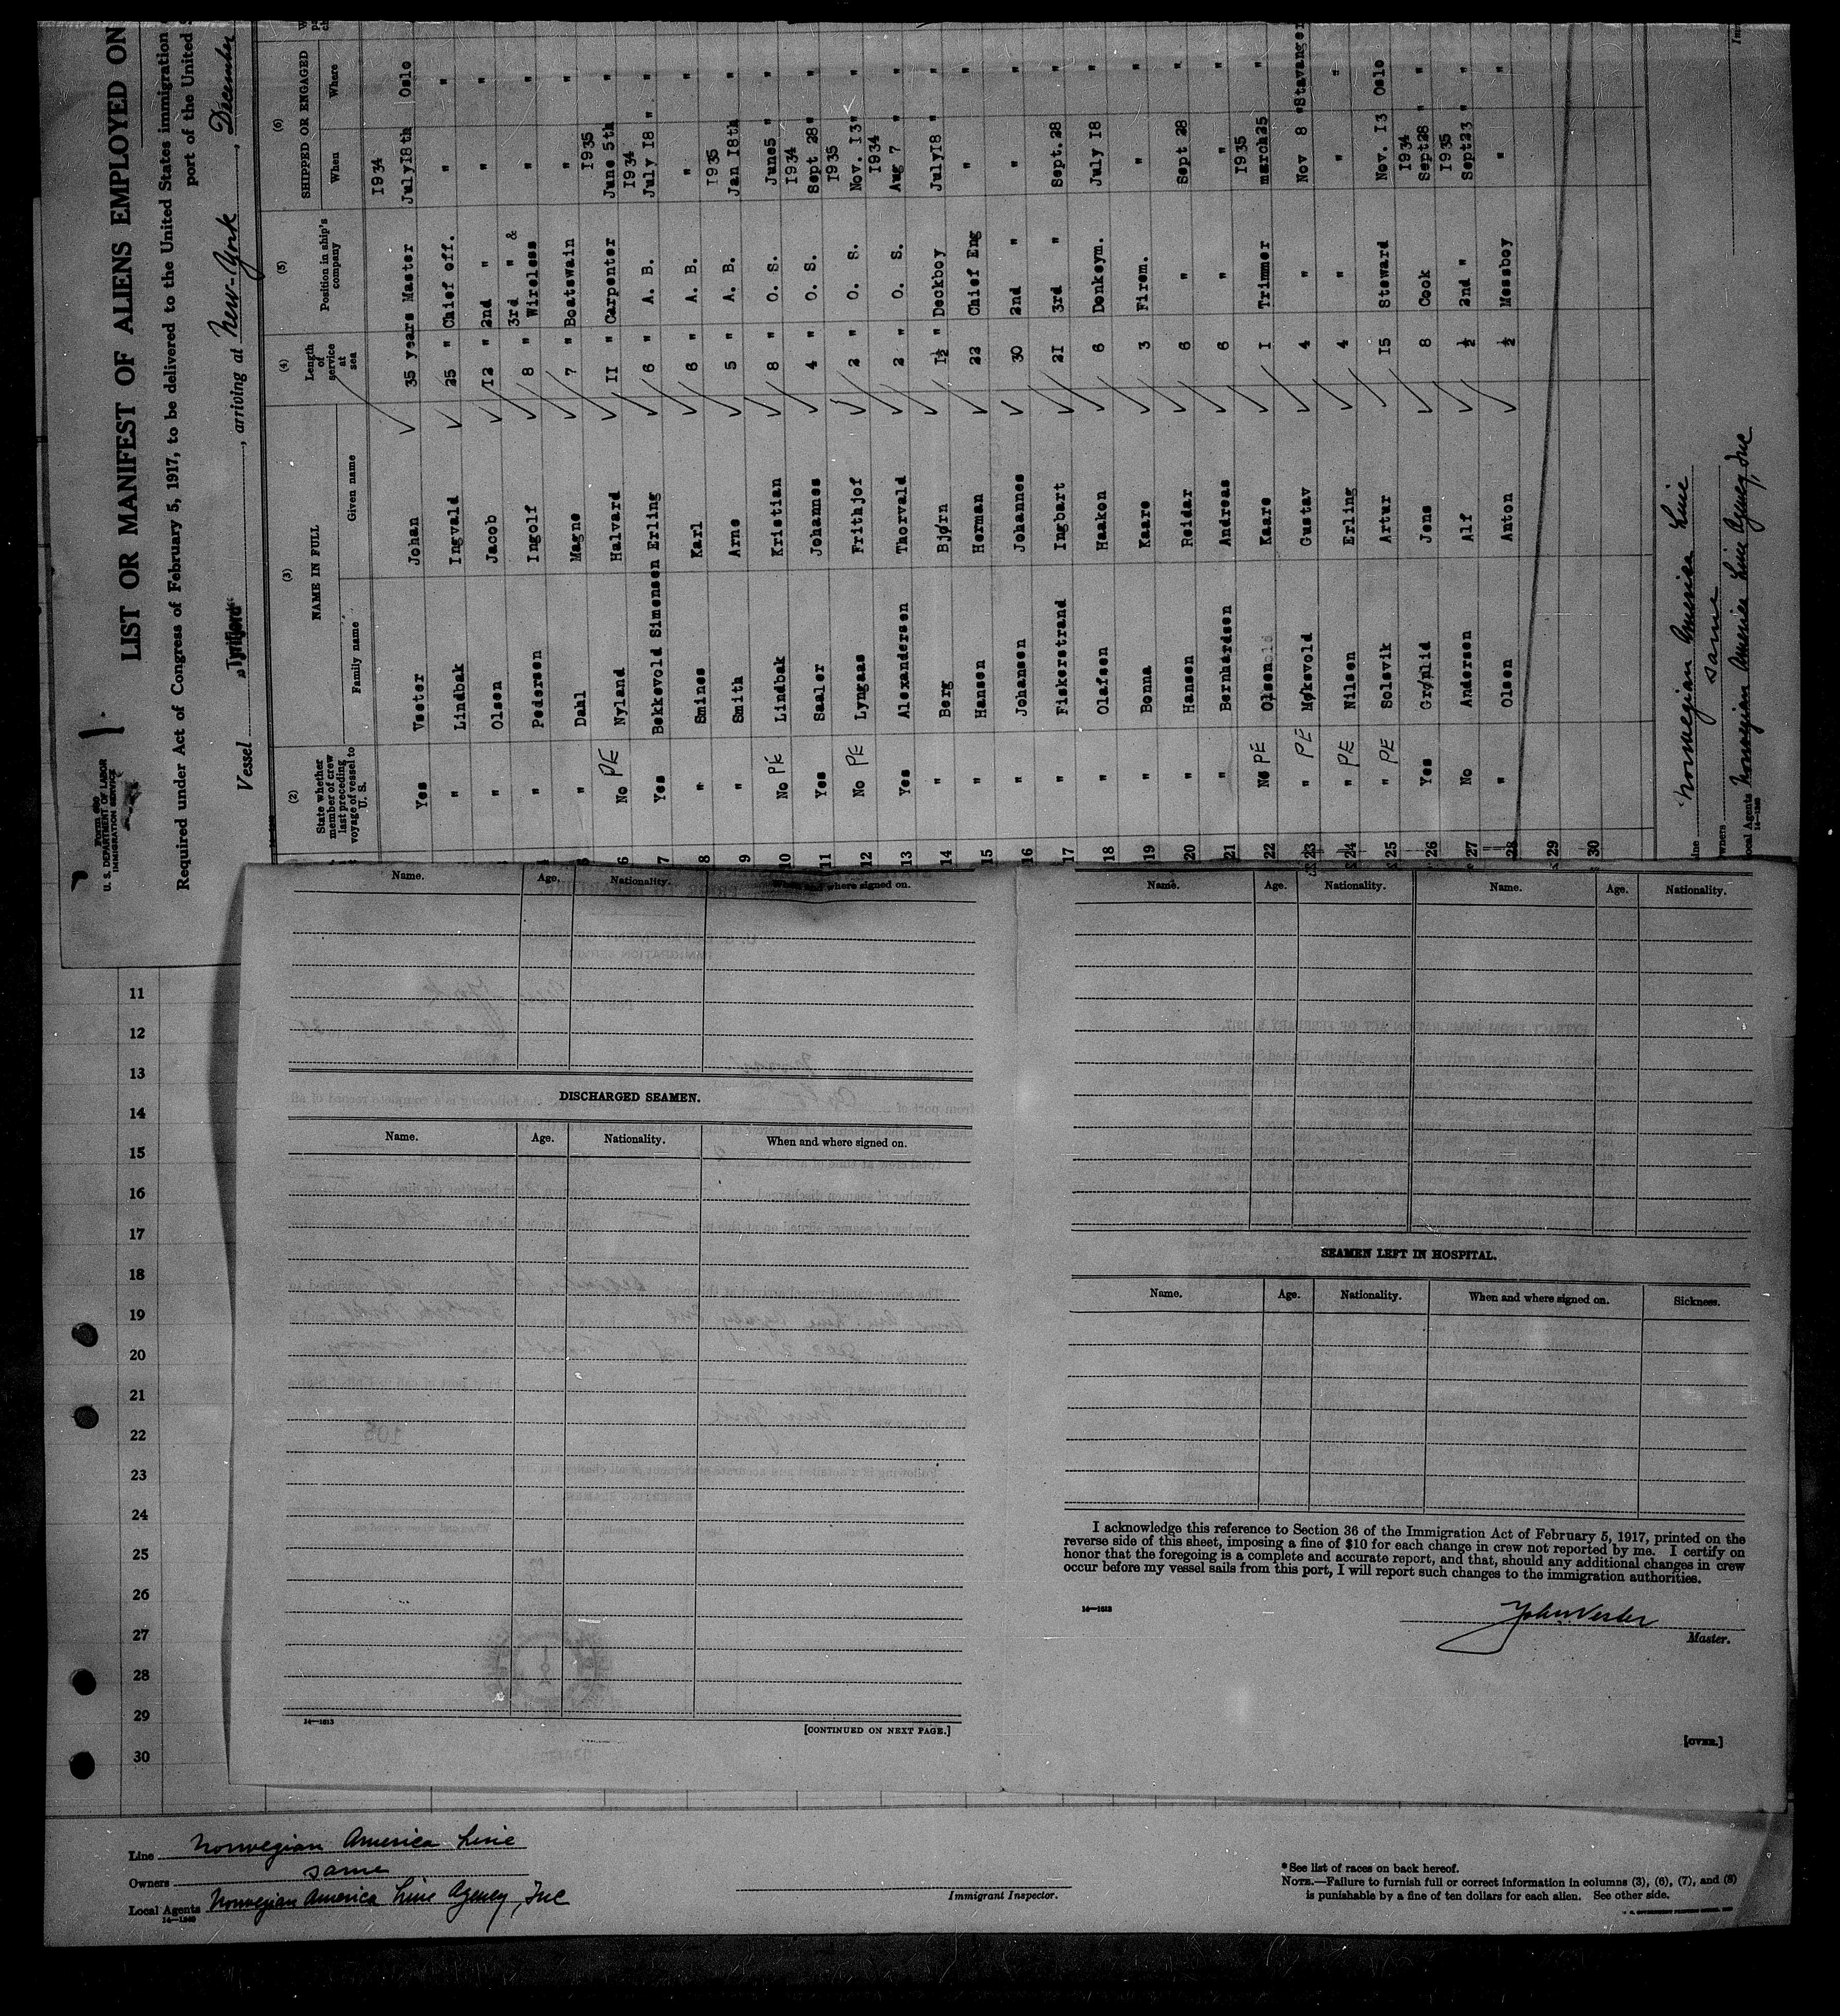 Form 689
U. S. DEPARTMENT OF LABOR
IMMIGRATION SERVICE
LIST OR MANIFEST OF ALIENS EMPLOYED ON
Required under Act of Congress of February 5, 1917, to be delivered to the United States immigration
port of the United
Vessel "Tyrifjord", arriving at New-York, December
(2) (3) (4) (5) (6)
State whether member of crew last preceding voyage of vessel to U. S. NAME IN FULL Length of service at sea Position in ship's company SHIPPED OR ENGAGED
Family name Given name When Where
1934
Yes Vester Johan 35 years Master July 18th Oslo
" Lindbak Ingvald 25 " Chief off. " "
" Olsen Jacob 12 " 2nd " " "
" Pedersen Ingolf 8 " 3rd " & Wireless " "
" Dahl Magne 7 " Boatswain " "
1935
6 No PE Nyland Halvard 11 " Carpenter June 5th "
1934
7 Yes Bekkevold Simensen Erling 6 " A. B. July 18 " "
8 " Smines Karl 6 " A. B. " "
1935
9 " Smith Arne 5 " A. B. Jan 18th "
10 No PE Lindbak Kristian 8 " O. S. June5 " "
1934
11 Yes Saaler Johannes 4 " O. S. Sept 28 " "
1935
12 No PE Lyngaas Frithjof 2 " O. S. Nov. 13 " "
1934
13 Yes Alexandersen Thorvald 2 " O. S. Aug 7 " "
14 " Berg Bjørn 1½ " Deckboy July18 " "
15 " Hansen Herman 22 Chief Eng " "
16 " Johansen Johannes 30 2nd " " "
17 " Fiskerstrand Ingbart 21 3rd " Sept.28 "
18 " Olafsen Haakon 6 Donkeym. July 18 "
19 " Bonna Kaare 3 Firem. " "
20 " Hansen Reidar 6 " Sept 28 "
21 " Bernhardsen Andreas 6 " " "
1935
22 No PE Olsen Kaare 1 Trimmer march25 "
23 " PE Møkevold Gustav 4 " Nov 8 "Stavanger
24 " PE Nilsen Erling 4 " " "
25 " PE Solsvik Artur 15 Steward Nov. 13 Oslo
1934
26 Yes Grønlid Jens 8 Cook Sept28 " "
1935
27 No Andersen Alf ½ 2nd " Sept23 " "
28 " Olsen Anton ½ Messboy " "
29
30
Line Norwegian America Line
Owners same
Local Agents Norwegian America Line Agency, Inc
14—1240
11
12
13
14
15
16
17
18
19
20
21
22
23
24
25
26
27
28
29
30
Name. Age. Nationality. When and where signed on.
DISCHARGED SEAMEN.
Name. Age. Nationality. When and where signed on.
14—1613
[CONTINUED ON NEXT PAGE.]
Name. Age. Nationality. Name. Age. Nationality.
SEAMEN LEFT IN HOSPITAL.
Name. Age. Nationality. When and where signed on. Sickness.
I acknowledge this reference to Section 36 of the Immigration Act of February 5, 1917, printed on the
reverse side of this sheet, imposing a fine of $10 for each change in crew not reported by me. I certify on
honor that the foregoing is a complete and accurate report, and that, should any additional changes in crew
occur before my vessel sails from this port, I will report such changes to the immigration authorities.
14—1613
Joh. Vester
Master.
[OVER.]
Line Norwegian America Line
Owners same
Local Agents Norwegian America Line Agency, Inc
14—1240
Immigrant Inspector.
*See list of races on back hereof.
NOTE.—Failure to furnish full or correct information in columns (3), (6), (7), and (8)
is punishable by a fine of ten dollars for each alien. See other side.